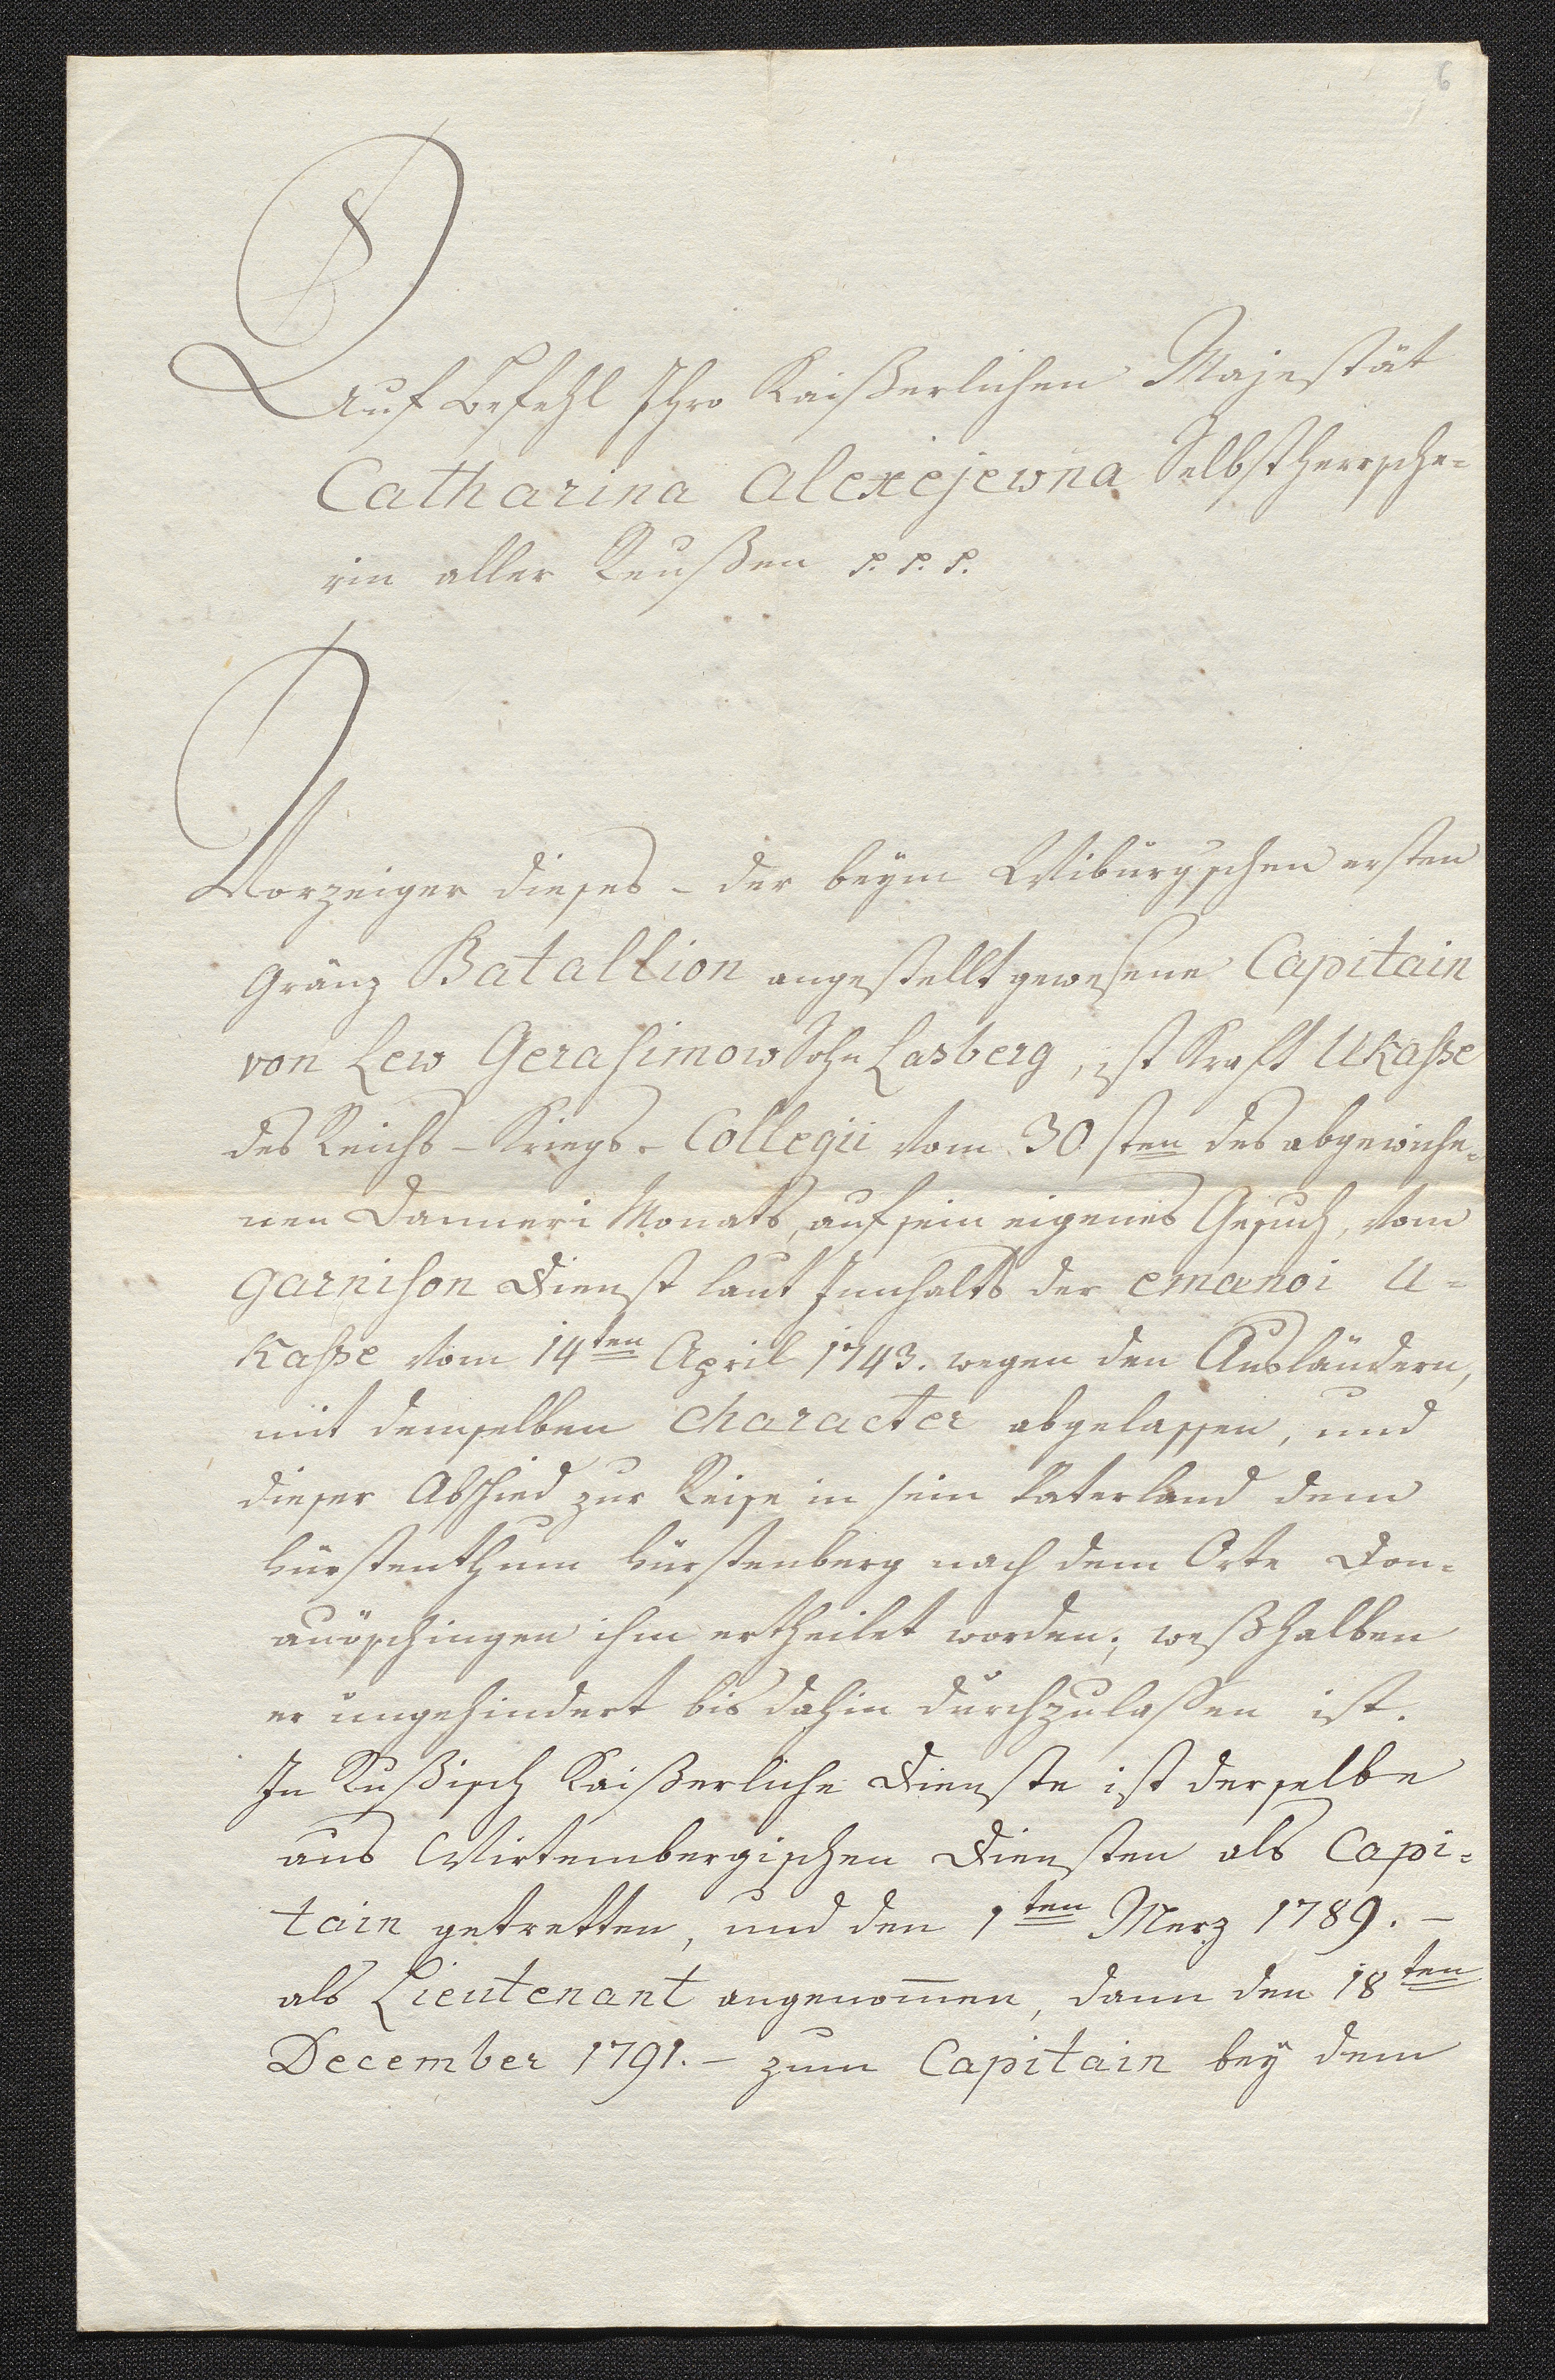 6
Auf Befehl Ihro Kaißerlichen Majestät
Catharina Alexejewna Selbstherrsche=
rin aller Reußen p. p. p.
Vorzeiger dieses - der beym Wiburgschen ersten
Gränz Batallion angestellt gewesene Capitain
von Lew Gerasimow Sohn Lasberg, ist Kraft Ukasse
des Reichs - Kriegs - Collegii vom 30sten des abgewiche=
nen Januari Monats, auf sein eigenes Gesuch, vom
Garnison Dienst laut Innhalts der emænoi U=
kasse vom 14ten April 1743. wegen den Ausländern,
mit demselben Character abgelassen, und
dieser Abschied zur Reise in sein Vaterland dem
Fürstenthum Fürstenberg nach dem Orte Don=
auöschingen ihm ertheilet worden; weßhalben
er ungehindert bis dahin durchzulassen ist.
In Rußisch Kaißerliche Dienste ist derselbe
aus Wirtembergischen Diensten als Capi=
tain getretten, und den 1ten Merz 1789. -
als Lieutenant angenom̄en, dann den 18ten
December 1791. - zum Capitain bey dem